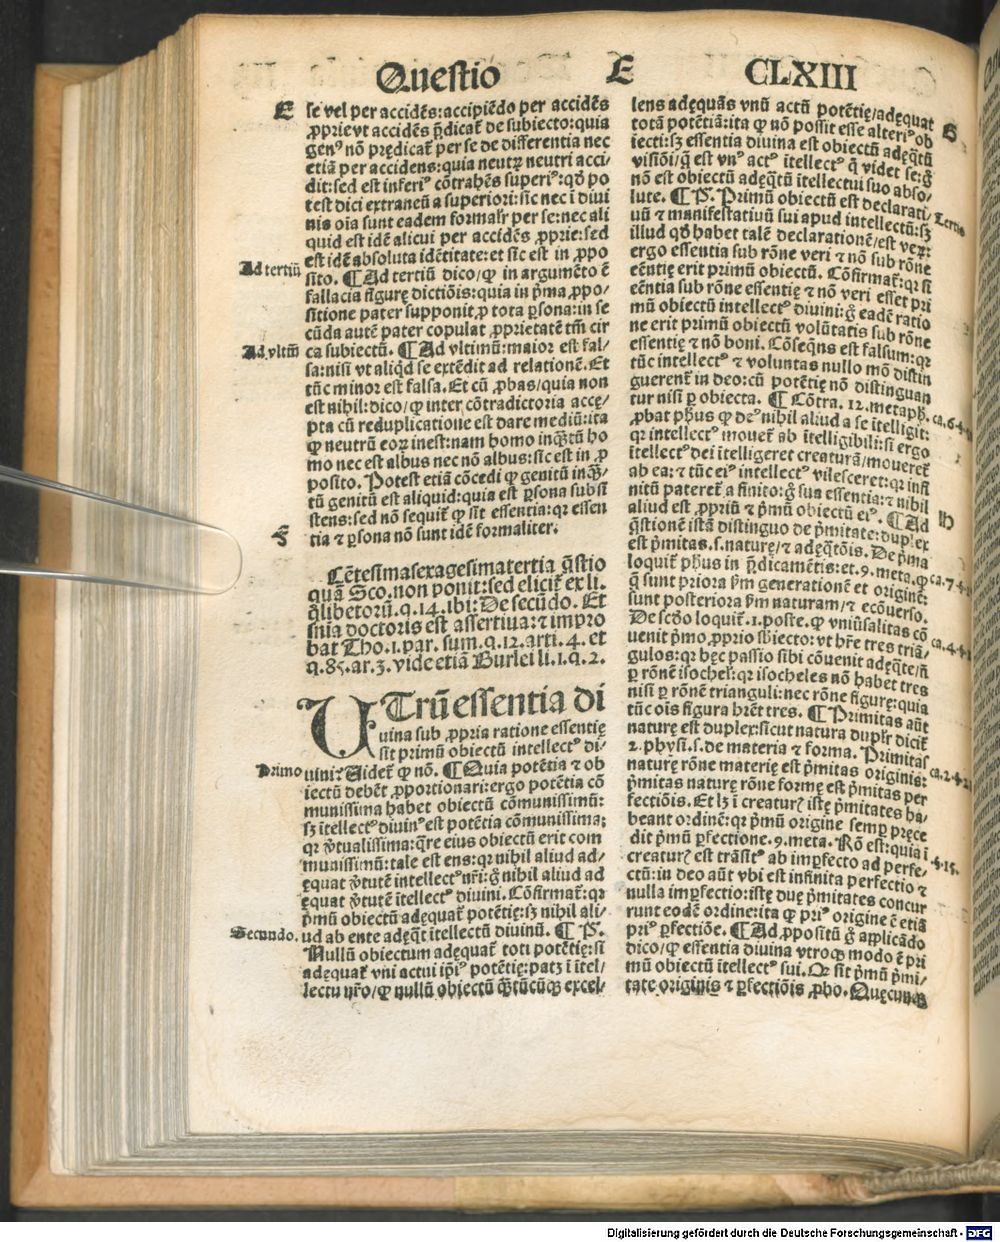 Questio E CLXIII
E se vel per accidẽs: accipiẽdo per accidẽs
ꝓprie vt accidẽs p̃dicat᷑ de subiecto: quia
genꝰ nõ prędicat᷑ per se de differentia nec
etiã per accidens: quia neutꝝ neutri acci
dit: sed est inferiꝰ cõtrahẽs superiꝰ: qď po
test dici extraneũ a superiori: sic nec ĩ diui
nis oĩa sunt eadem formalr̃ per se: nec ali
quid est idẽ alicui per accidẽs ꝓprie: sed
est idẽ absoluta idẽtitate: et sic est in ꝓpo
Ad tertiũ sito. ¶ Ad tertiũ dico/ ꝙ in argumẽto ẽ
fallacia figurę dictiõis: quia in p̃ma ꝓpo/
sitione pater supponit ꝓ tota ꝑsona: in se
cũda autẽ pater copulat ꝓprietatẽ tm̃ cir
Ad vltm̃ ca subiectũ. ¶ Ad vltimũ: maior est fal/
sa: nisi vt aliqd se extẽdit ad relationẽ. Et
tũc minor est falsa. Et cũ ꝓbas/ quia non
est nihil: dico/ ꝙ inter cõtradictoria accę/
pta cũ reduplicatione est dare mediũ: ita
ꝙ neutrũ eoꝝ inest: nam homo inq̃tũ ho
mo nec est albus nec nõ albus: sic est in ꝓ
posito. Potest etiã cõcedi ꝙ genitũ inq̃/
tũ genitũ est aliquid: quia est ꝑsona subsi
stens: sed nõ sequit᷑ ꝙ sit essentia: qr essen
tia ⁊ ꝑsona nõ sunt idẽ formaliter.
Cẽtesimasexagesimatertia q̃stio
quã Sco. non ponit: sed elicit᷑ ex li.
q̃libetorũ. q. 14. ibi: De secũdo. Et
s̃nia doctoris est assertiua: ⁊ impro
bat Tho. 1. par. sum. q. 12. arti. 4. et
q. 85. ar. 3. vide etiã Burlei li. 1. q. 2.
VTrũ essentia di
uina sub ꝓpria ratione essentię
sit primũ obiectũ intellectꝰ di/
Primo uini? Videt᷑ ꝙ nõ. ¶ Quia potẽtia ⁊ ob
iectũ debẽt ꝓportionari: ergo potẽtia cõ
munissima habet obiectũ cõmunissimũ:
sꝫ ĩtellectꝰ diuinꝰ est potẽtia cõmunissima;
qr ṽtualissima: q̃re eius obiectũ erit com
munissimũ: tale est ens: qr nihil aliud ad/
ęquat ṽtutẽ intellectꝰ nr̃i: g̊ nihil aliud ad
ęquat ṽtutẽ ĩtellectꝰ diuini. Cõfirmat᷑: qr
p̃mũ obiectũ adęquat᷑ potẽtię: sꝫ nihil ali/
Secundo. ud ab ente adęq̃t ĩtellectũ diuinũ. ¶ P.
Nullũ obiectum adęquat᷑ toti potẽtię: si
adęquat᷑ vni actui ip̃iꝰ potẽtię: patꝫ ĩ ĩtel/
lectu nr̃o/ ꝙ nullũ obiectũ q̃tũcũqꝫ excel/
lens adęquãs vnũ actũ potẽtię/ adęquat
totã potẽtiã: ita ꝙ nõ possit esse alteriꝰ ob
iecti: sꝫ essentia diuina est obiectũ adęq̃tũ
visiõi/ q̃ est vnꝰ actꝰ ĩtellectꝰ q̃ videt se: g̊
nõ est obiectũ adęq̃tũ ĩtellectui suo abso/
lute. ¶ P. Primũ obiectũ est declarati/ Tertio
uũ ⁊ manifestatiuũ sui apud intellectũ: sꝫ
illud qď habet talẽ declarationẽ/ est veꝝ:
ergo essentia sub rõne veri ⁊ nõ sub rõne
eẽntię erit primũ obiectũ. Cõfirmat᷑: qr si
eẽntia sub rõne essentię ⁊ nõ veri esset pri
mũ obiectũ intellectꝰ diuini: g̊ eadẽ ratio
ne erit primũ obiectũ volũtatis sub rõne
essentię ⁊ nõ boni. Cõseq̃ns est falsum: qr
tũc intellectꝰ ⁊ voluntas nullo mõ distin
guerent᷑ in deo: cũ potẽtię nõ distinguan
tur nisi ꝑ obiecta. ¶ Cõtra. 12. metaph.
ꝓbat ph̃us ꝙ deꝰ nihil aliud a se ĩtelligit:
qr intellectꝰ mouet᷑ ab ĩtelligibili: si ergo
ĩtellectꝰ dei ĩtelligeret creaturã/ mouеret᷑
ab ea: ⁊ tũc eiꝰ intellectꝰ vilesceret: qr infi
nitũ pateret᷑ a finito: g̊ sua essentia: ⁊ nihil
aliud est ꝓpriũ ⁊ p̃mũ obiectũ eiꝰ. ¶ Ad
q̃stionẽ istã distinguo de p̃mitate: duplex
est p̃mitas. s. naturę/ ⁊ adęq̃tõis. De p̃ma
loquit᷑ ph̃us in p̃dicamẽtis: et. 9. meta. ꝙ
q̃ sunt priora ẜm generationẽ et originẽ:
sunt posteriora ẜm naturam/ ⁊ ecõuerso.
De scďo loquit᷑. 1. poste. ꝙ vniũsalitas cõ
uenit p̃mo ꝓprio sb̃iecto: vt hr̃e tres triã/
gulos: qr hęc passio sibi cõuenit adęq̃te/ ñ
ꝑ rõnẽ isochel᷑: qr isocheles nõ habet tres
nisi ꝑ rõnẽ trianguli: nec rõne figurę: quia
tũc oĩs figura hr̃et tres. ¶ Primitas aũt
naturę est duplex: sicut natura duplr̃ dicit᷑
2. physi. s. de materia ⁊ forma. Primitas
naturę rõne materię est p̃mitas originis:
p̃mitas naturę rõne formę est p̃mitas per
fectiõis. Et lꝫ ĩ creaturꝭ istę p̃mitates ha/
beant ordinẽ: qr p̃mũ origine semꝑ pręce
dit p̃mũ ꝑfectione. 9. meta. Rõ est: quia ĩ
creaturꝭ est trãsitꝰ ab imꝑfecto ad perfe/
ctũ: in deo aũt vbi est infinita perfectio ⁊
nulla imꝑfectio: istę duę p̃mitates concur
runt eodẽ ordine: ita ꝙ priꝰ origine ẽ etiã
priꝰ ꝑfectiõe. ¶ Ad ꝓpositũ g̊ applicãdo
dico/ ꝙ essentia diuina vtroqꝫ modo ẽ pri
mũ obiectũ ĩtellectꝰ sui. Qꝙ sit p̃mũ p̃mi/
tate originis ⁊ ꝑfectiõis ꝓbo. Quęcunqꝫ
Digitalisierung gefördert durch die Deutsche Forschungsgemeinschaft - DFG